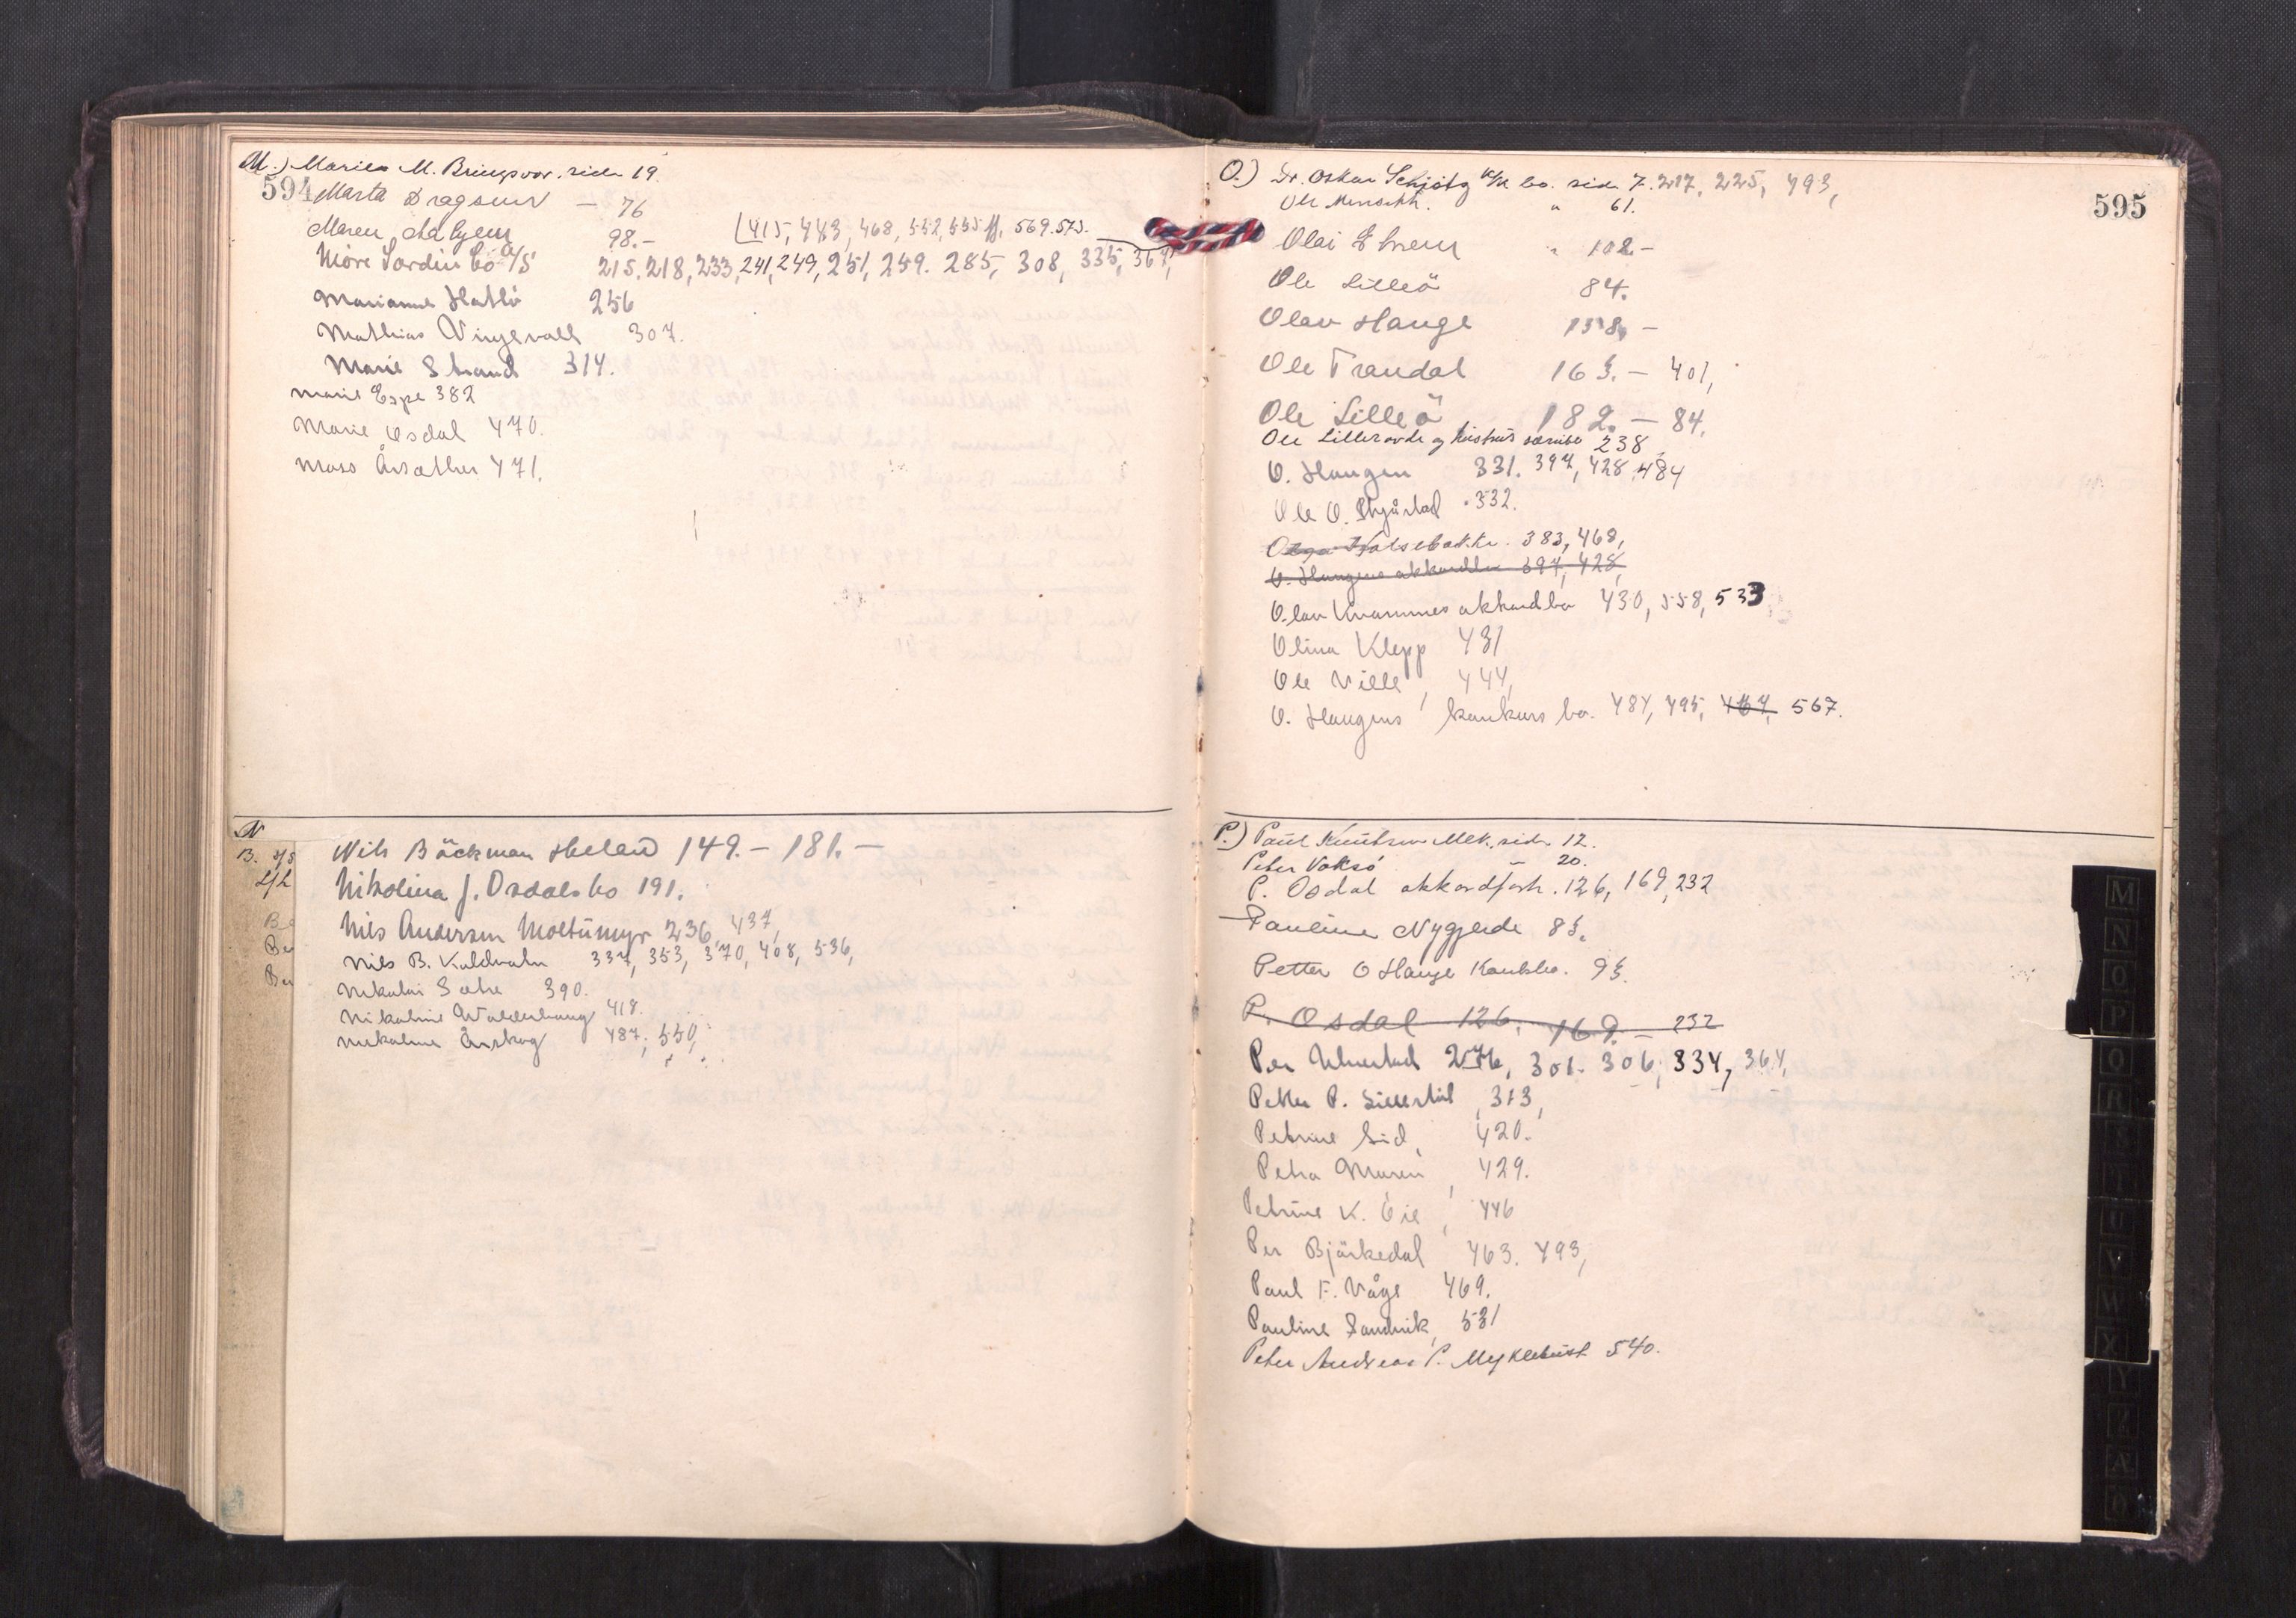 M.) M. Bringsvor. side 19.
594 Marta Dragsund - 76
Maren 98.-
415, 443, 468, 552, 555 ff, 569. 573.
Möre Sardin Co A/S 215. 218, 233, 241, 249, 251, 259. 285, 308, 335, 367,
Marianne Hatlö 256
Mathias 307.
Marie Strand 314.
Marie Espe 382
Marie Osdal 470.
Mass Årsæther 471.
N
B. 4/5
Be
Be
Be
Nils Bäckman 149.- 181.-
Nikolina J. Osdals bo 191.
Nils Andersen Moltumyr 236, 437,
Nils B. Kaldvatn 337, 353, 370, 408, 536,
Nikolai 390.
Nikoline Walderhaug 418.
Nikoline Årskog 487, 550,
O.) Dr. Oskar Schjötz bo. side 7. 217, 225, 493,
595
Ole " 61.
Olai " 102.-
Ole Lilleö 84.
Olav Hauge 138, -
Ole Trandal 163. - 401,
Ole Lilleö 182. - 84.
Ole og 238
O. Haugen 331. 397, 428, 484
Ole O. 332.
Olga Holsebakke. 383, 468,
O. Haugens akkordbo 397, 428,
Olav Kvammes akkordbo 430, 558, 533
Olina Klepp 431
Ole 444,
O. Haugens konkurs bo. 484, 495, 567.
P.) Paul Knutsen side 12.
Peter Voksö " 20.
P. Osdal akkordforh. 126, 169, 232
Pauline Nygjerde 83.
Petter O Hauge Konkbo. 93.
P. Osdal 126, 169. - 232
Per Ulvestad 276, 301. 306, 334, 364,
Petter P. 313,
Petrine Eid, 420.
Petra Maren, 429.
Petrine K. Öie, 446
Per Björkedal 463. 493,
Paul F. Våge 469.
Pauline Sandvik, 531
Peter Andreas P. Myklebust 540.
M
N
O
P
Q
R
S
T
U
V
W
X
Y
Z
Æ
Ö